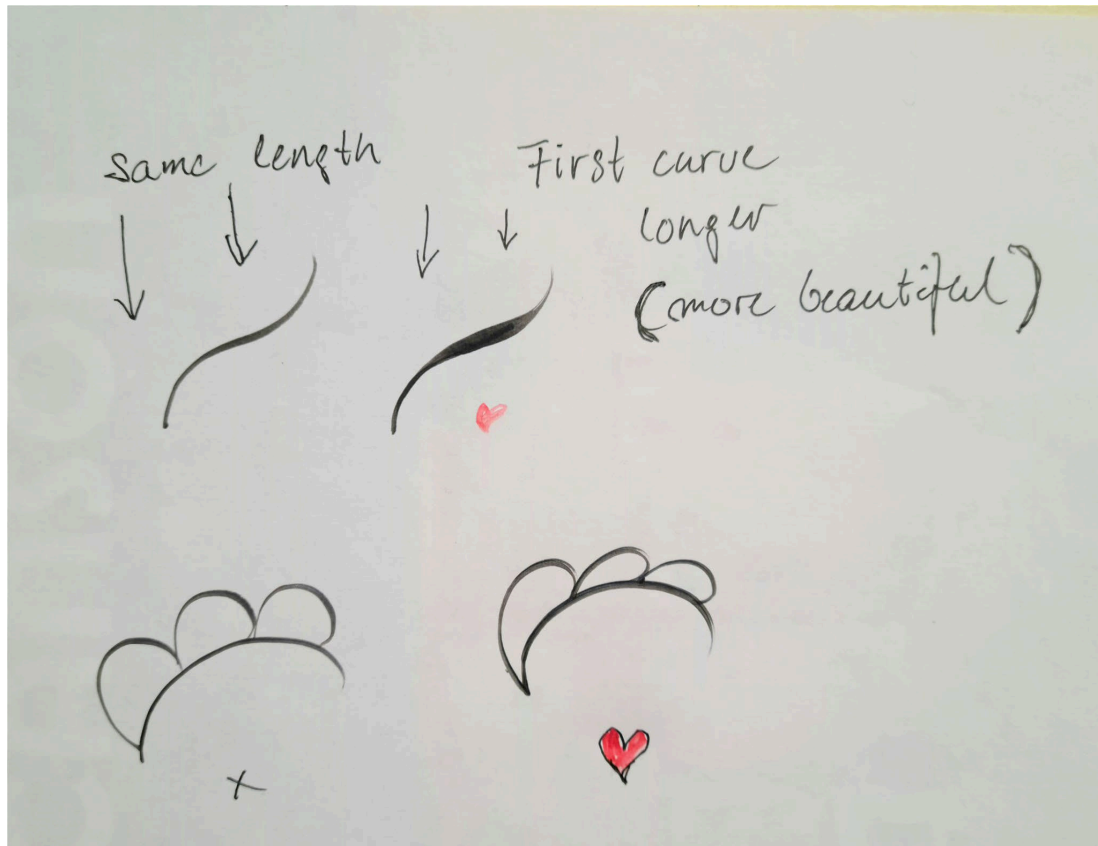 Same length
First curve
longer
(more beautiful)